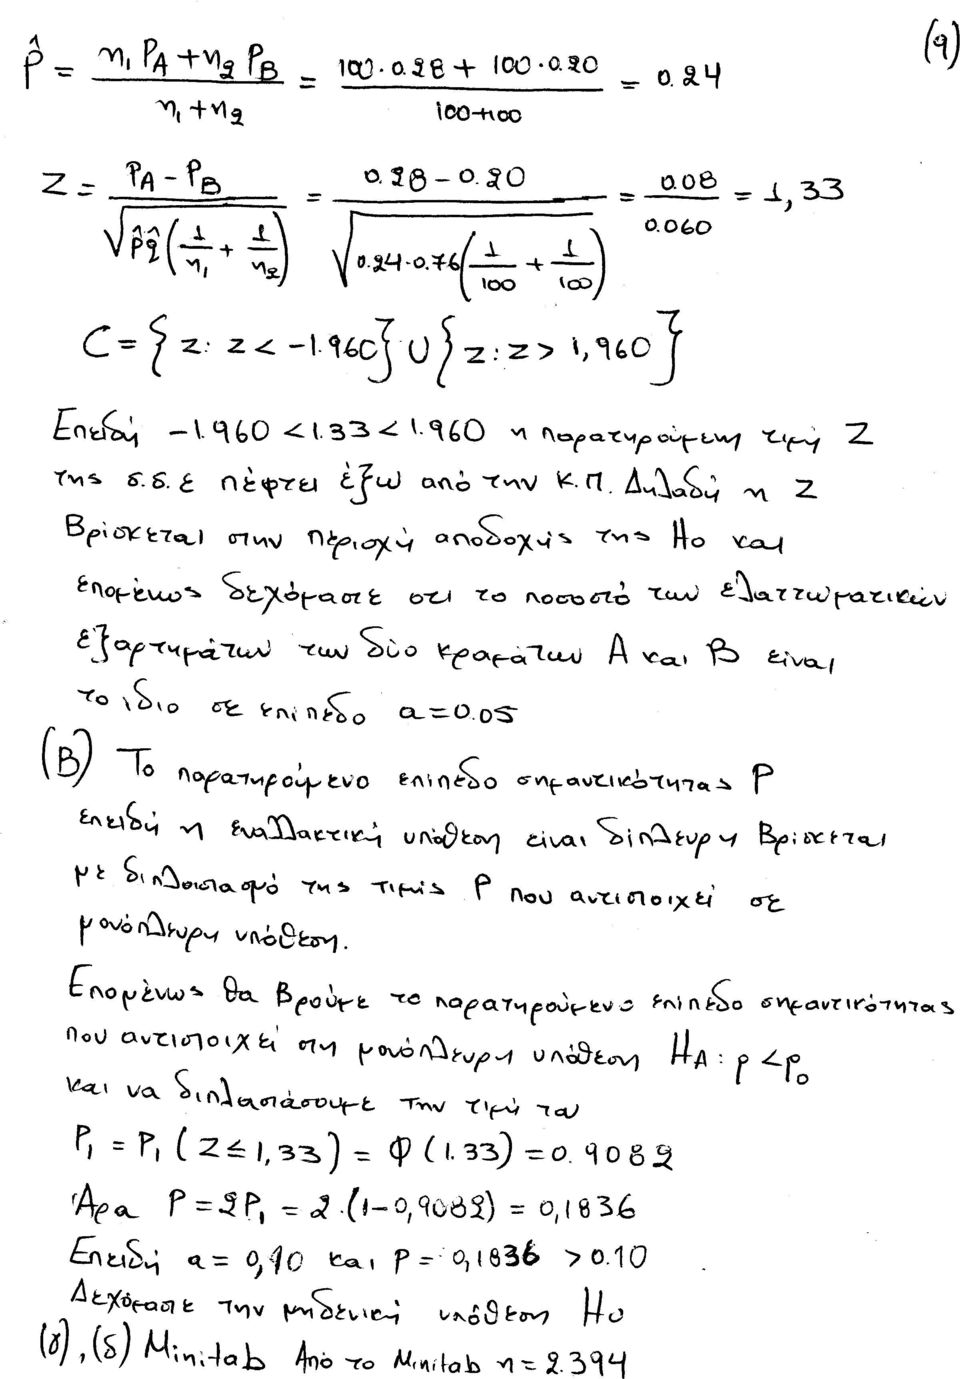 (9)
P̂ = (n₁ P_A + n₂ P_B) / (n₁ + n₂) = (100·0.28 + 100·0.20) / (100+100) = 0.24
Z = (P_A − P_B) / √(p̂q̂(1/n₁ + 1/n₂)) = (0.28 − 0.20) / √(0.24·0.76(1/100 + 1/100)) = 0.08 / 0.060 = 1,33
C = {z: z < −1.960} ∪ {z: z > 1,960}
Επειδή −1.960 < 1.33 < 1.960 η παρατηρούμενη τιμή Z
της σ.δ.ε πέφτει έξω από την Κ.Π. Δηλαδή η Z
Βρίσκεται στην περιοχή αποδοχής της Ho και
επομένως δεχόμαστε οτι το ποσοστό των ελαττωματικών
εξαρτημάτων των δύο κραμάτων A και B είναι
το ιδιο σε επίπεδο a=0.05
(Β) Το παρατηρούμενο επίπεδο σημαντικότητας P
επειδή η εναλλακτική υπόθεση είναι δίπλευρη Βρίσκεται
με διπλασιασμό της τιμής P που αντιστοιχεί σε
μονόπλευρη υπόθεση.
Επομένως θα βρούμε το παρατηρούμενο επίπεδο σημαντικότητας
που αντιστοιχεί στη μονόπλευρη υπόθεση H_A: p < p₀
και να διπλασιάσουμε την τιμή του
P₁ = P₁ (Z ≤ 1,33) = Φ (1.33) = 0.9082
Άρα P = 2P₁ = 2·(1−0,9082) = 0,1836
Επειδή a = 0,10 και P = 0,1836 > 0.10
Δεχόμαστε την μηδενική υπόθεση Ho
(γ), (δ) Minitab Από το Minitab n = 2.394